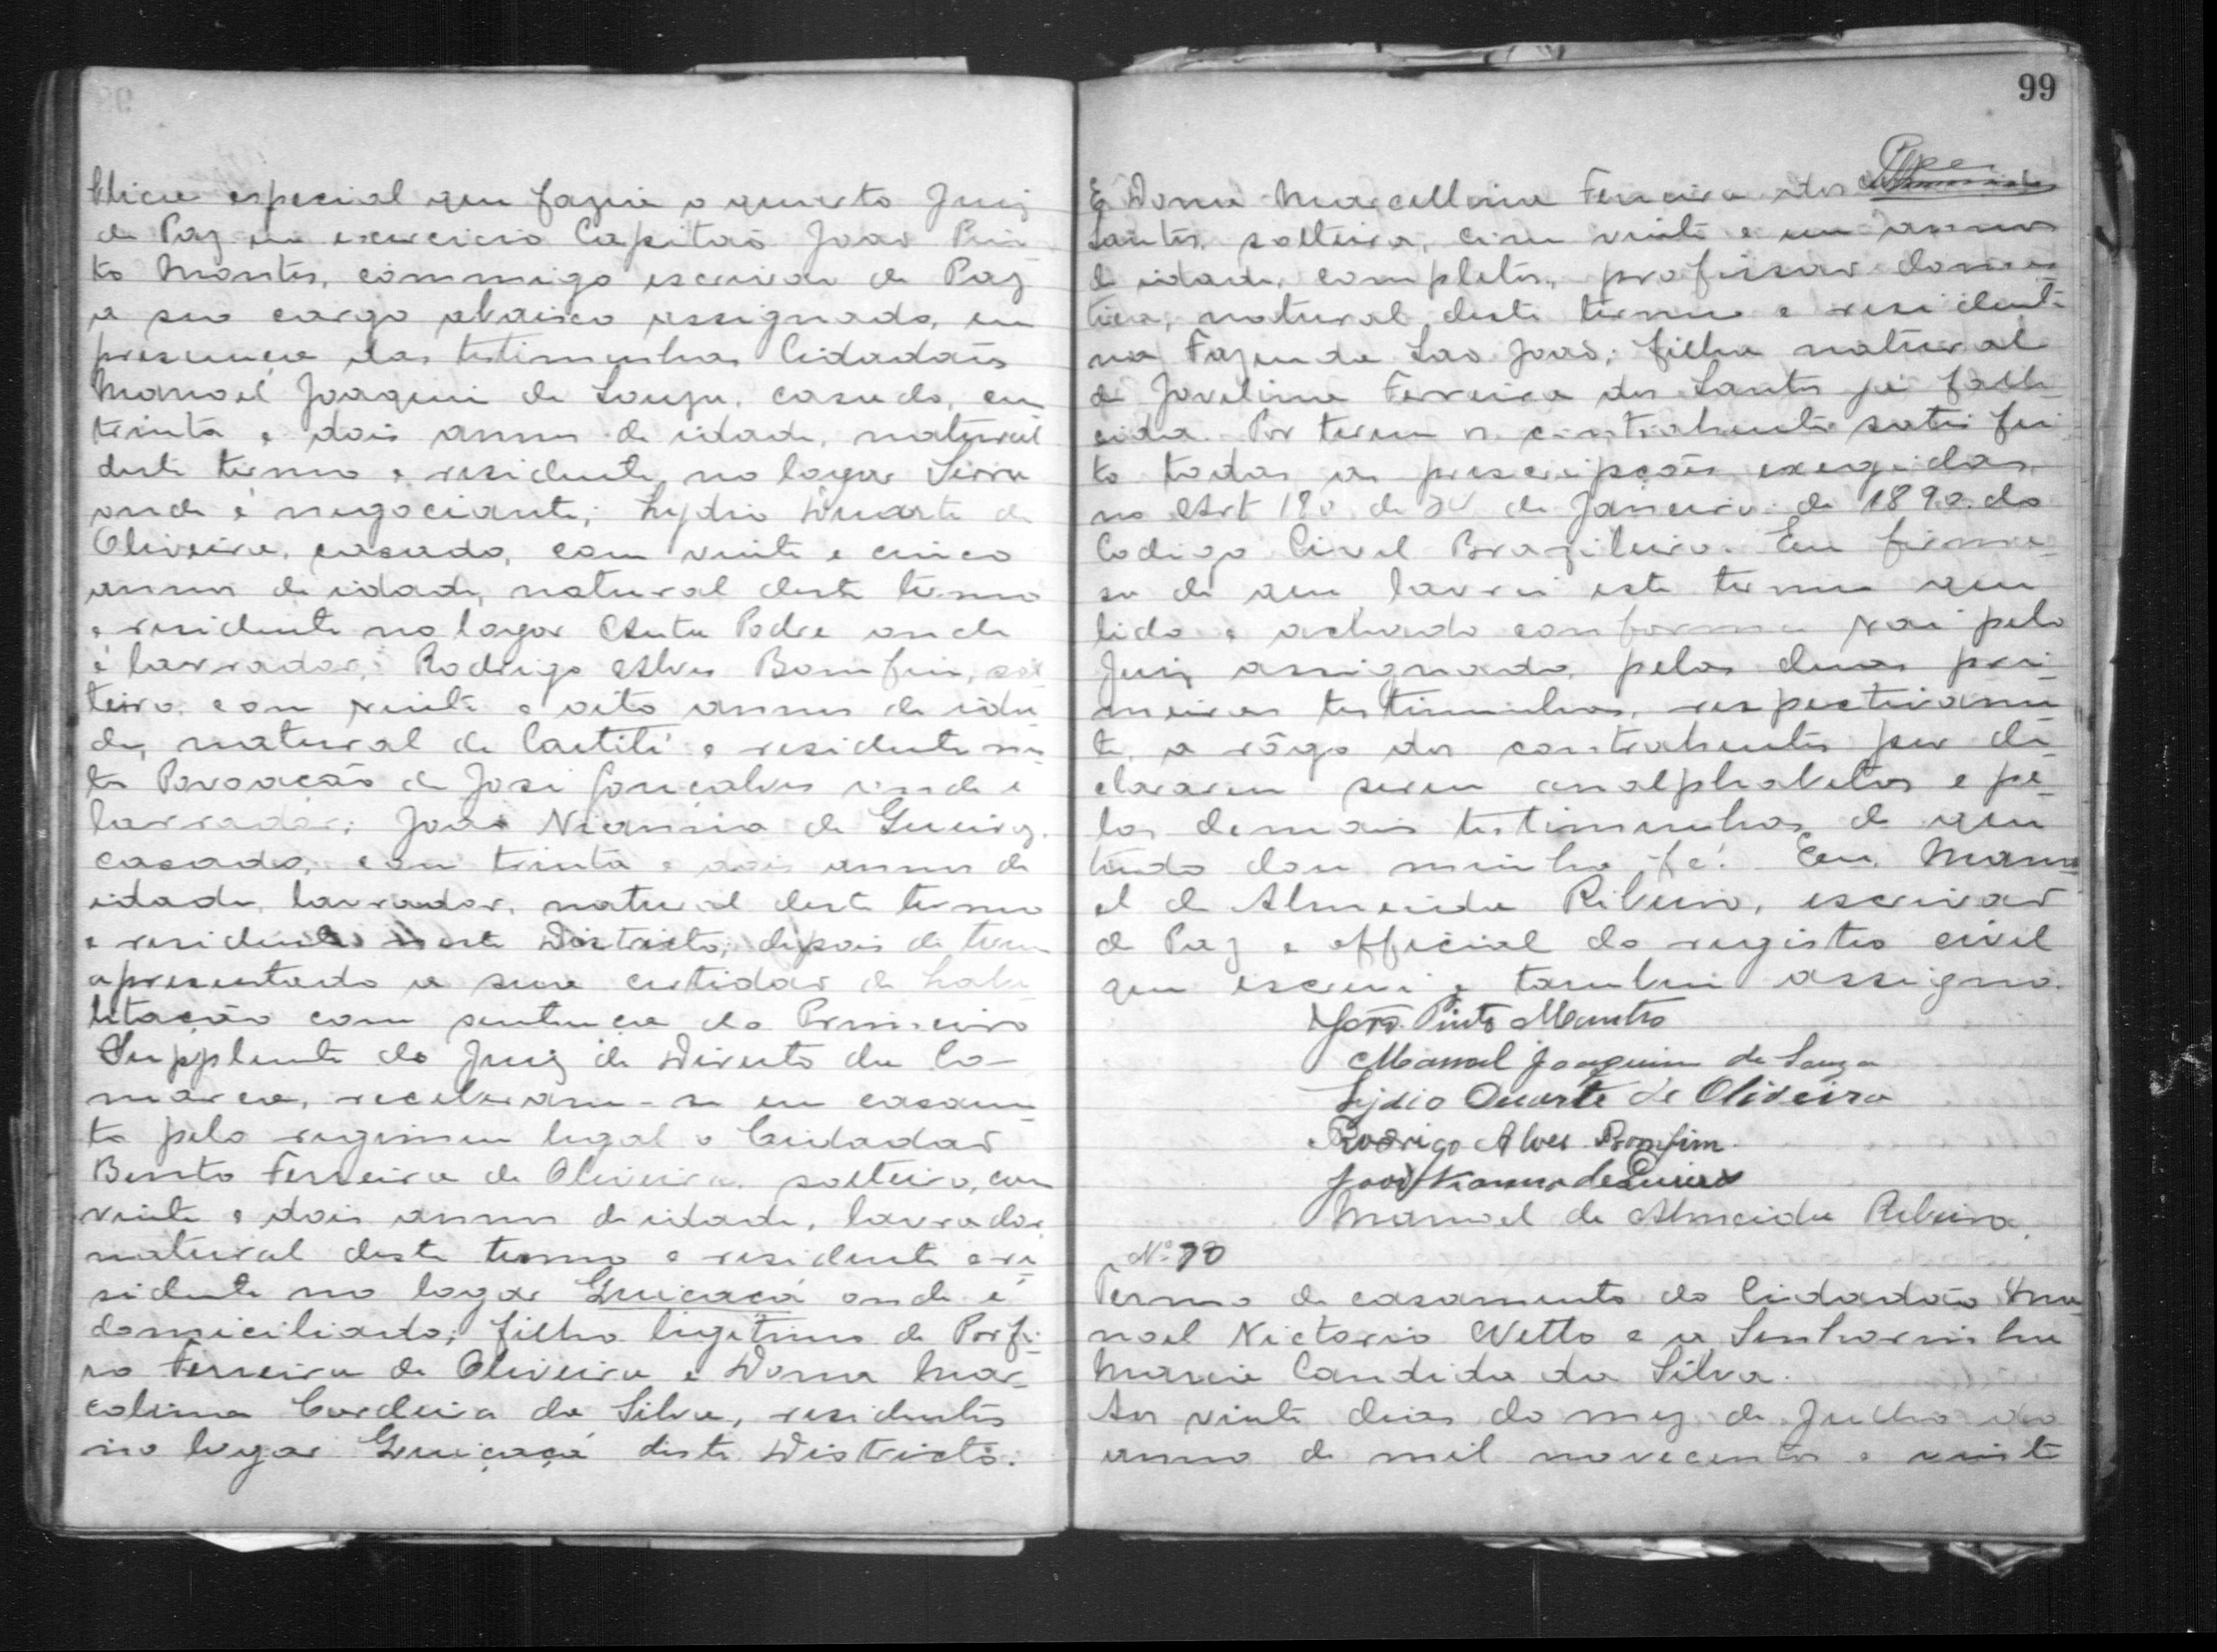 blica especial que fazia o quarto Juiz
de Paz em exercicio Capitaõ Joaõ Pin-
to Montes, commigo escrivaõ de Paz
a seo cargo abaixo assignado, em
presença das testimunhas Cidadaõs
Manoel Joaquim de Souza, casado, com
trinta e dois annos de idade, natural
deste termo e residente no logar Serra
onde é negociante; Lydio Duarte de
Oliveira, casado, com vinte e cinco
annos de idade, natural deste termo
e residente no logar Padre onde
é lavrador; Rodrigo Alves Bomfim, sol
teiro, com vinte e oito annos de ida
de, natural de Caetité e residente nes
ta Povoação de José Gonçalves onde é
lavrador; João de
casado, com trinta e dois annos de
idade, lavrador, natural deste termo
e residente neste Districto; depois de terem
apresentado a sua certidaõ de habi
litação com sentença do Primeiro
Supplente do Juiz de Direito da Co-
marca, receberam-se em casamen
to pelo regimen legal o Cidadaõ
Bento Ferreira de Oliveira, solteiro, com
vinte e dois annos de idade, lavrador,
natural deste termo e residente e re
sidente no logar Guiçaçá onde é
domiciliado; filho ligitimo de Porfi-
ro Ferreira de Oliveira e Dona Mar-
colina Cordeira da Silva, residentes
no logar Guiçaçá deste Districto.
99
E Dona Marcellina Ferreira dos
Santos, solteira, com vinte e um annos
de idade, completos, profissaõ domes
tica, natural deste termo e residente
na Fazenda Saõ Joaõ; filha natural
de Jovelina Ferreira dos Santos já falle
cida. Por terem os contrahentes satisfei
to todas as prescripçoẽs exegidas
no Art 180 de 24 de Janeiro de 1890 do
Codigo Civel Brazileiro. Em firme-
sa de que lavrei este termo que
lido e achado conforme vai pelo
Juiz assignado, pelas duas pri
meiras testimunhas, respectivamen
te, a rôgo dos contrahentes por de
clararem serem analphabetos e pe-
las demais testimunhas de que
tudo dou minha fé. Eu, Mano
el de Almeida Ribeiro, escrivaõ
de Paz e official do registro civil
que escrevi e tambem assigno.
João Pinto Montes
Manoel Joaquim de Souza
Lydio Duarte de Oliveira
Rodrigo Alves Bomfim.
João de
Manoel de Almeida Ribeiro.
Nº 70
Termo de casamento do Cidadaõ Ma
noel Victorio Netto e a Senhorinha
Maria Candida da Silva.
Aos vinte dias do mez de Julho do
anno de mil novecentos e vinte